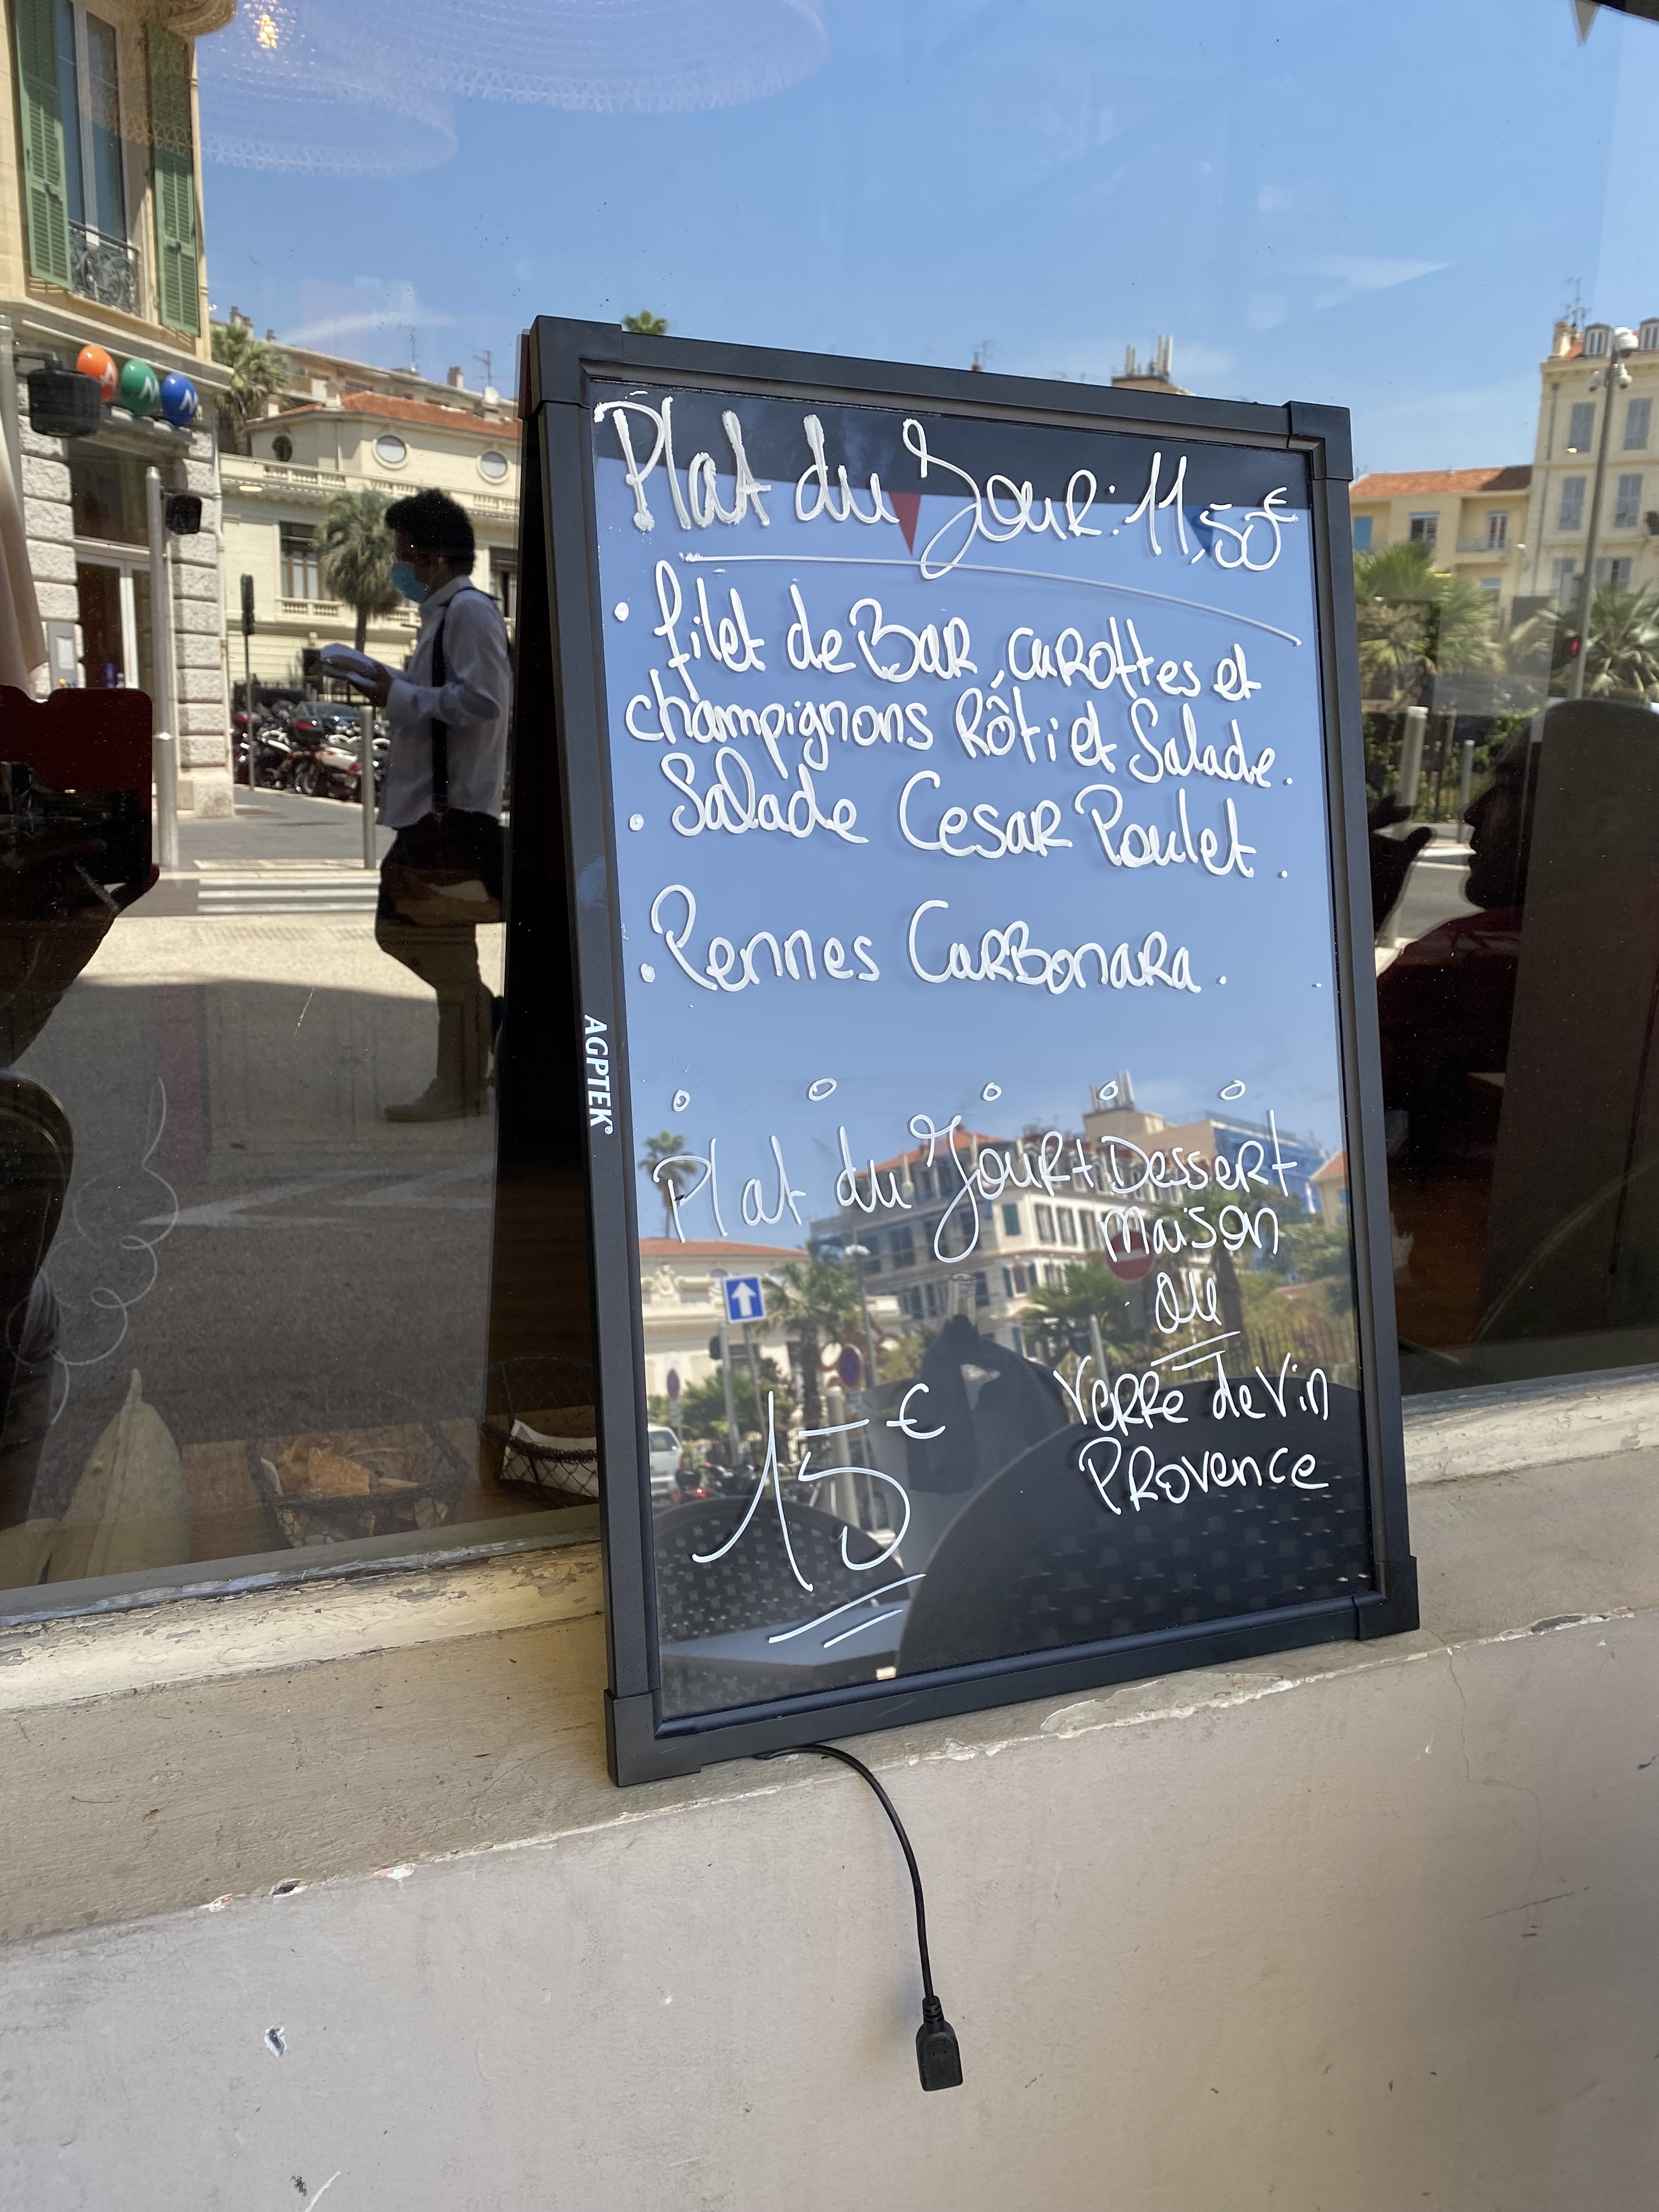 Plat du Jour: 11,50€
• filet de Bar, carottes et
champignons Rôti et Salade.
• Salade Cesar Poulet.
• Pennes Carbonara.
Plat du Jour + Dessert
maison
ou
Verre de Vin
Provence
15€
AGPTEK®